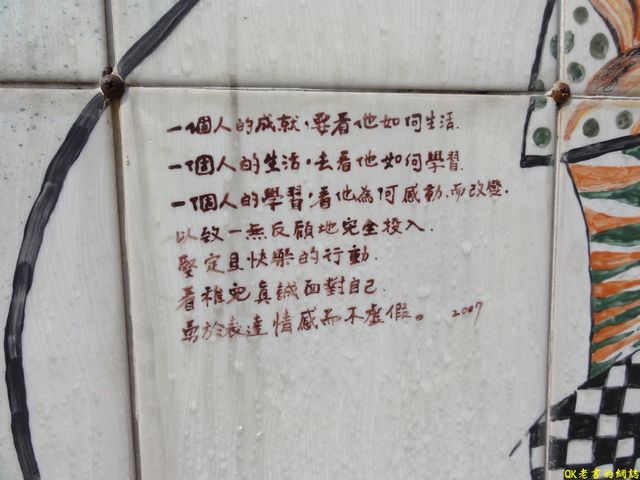 一個人的成就,要看他如何生活.
一個人的生活。去看他如何學習.
一個人的學習,看他為何感動,而改變.
以致一無反顧地完全投入.
堅定且快樂的行動.
看雅兒真誠面對自己.
勇於表達情感而不虛假。 2007
QK老書的網誌